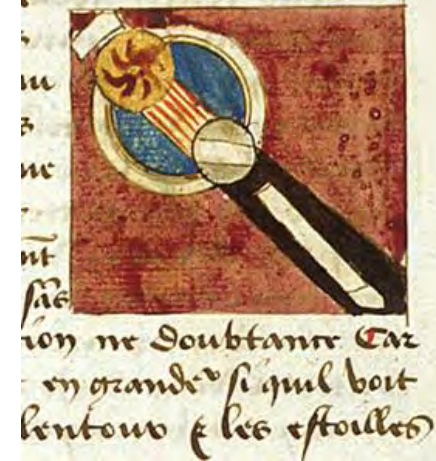 au
ne
nt
sãs
ion ne doubtance Car
en grandeᵛ si quil voit
lentouv & les estoilles